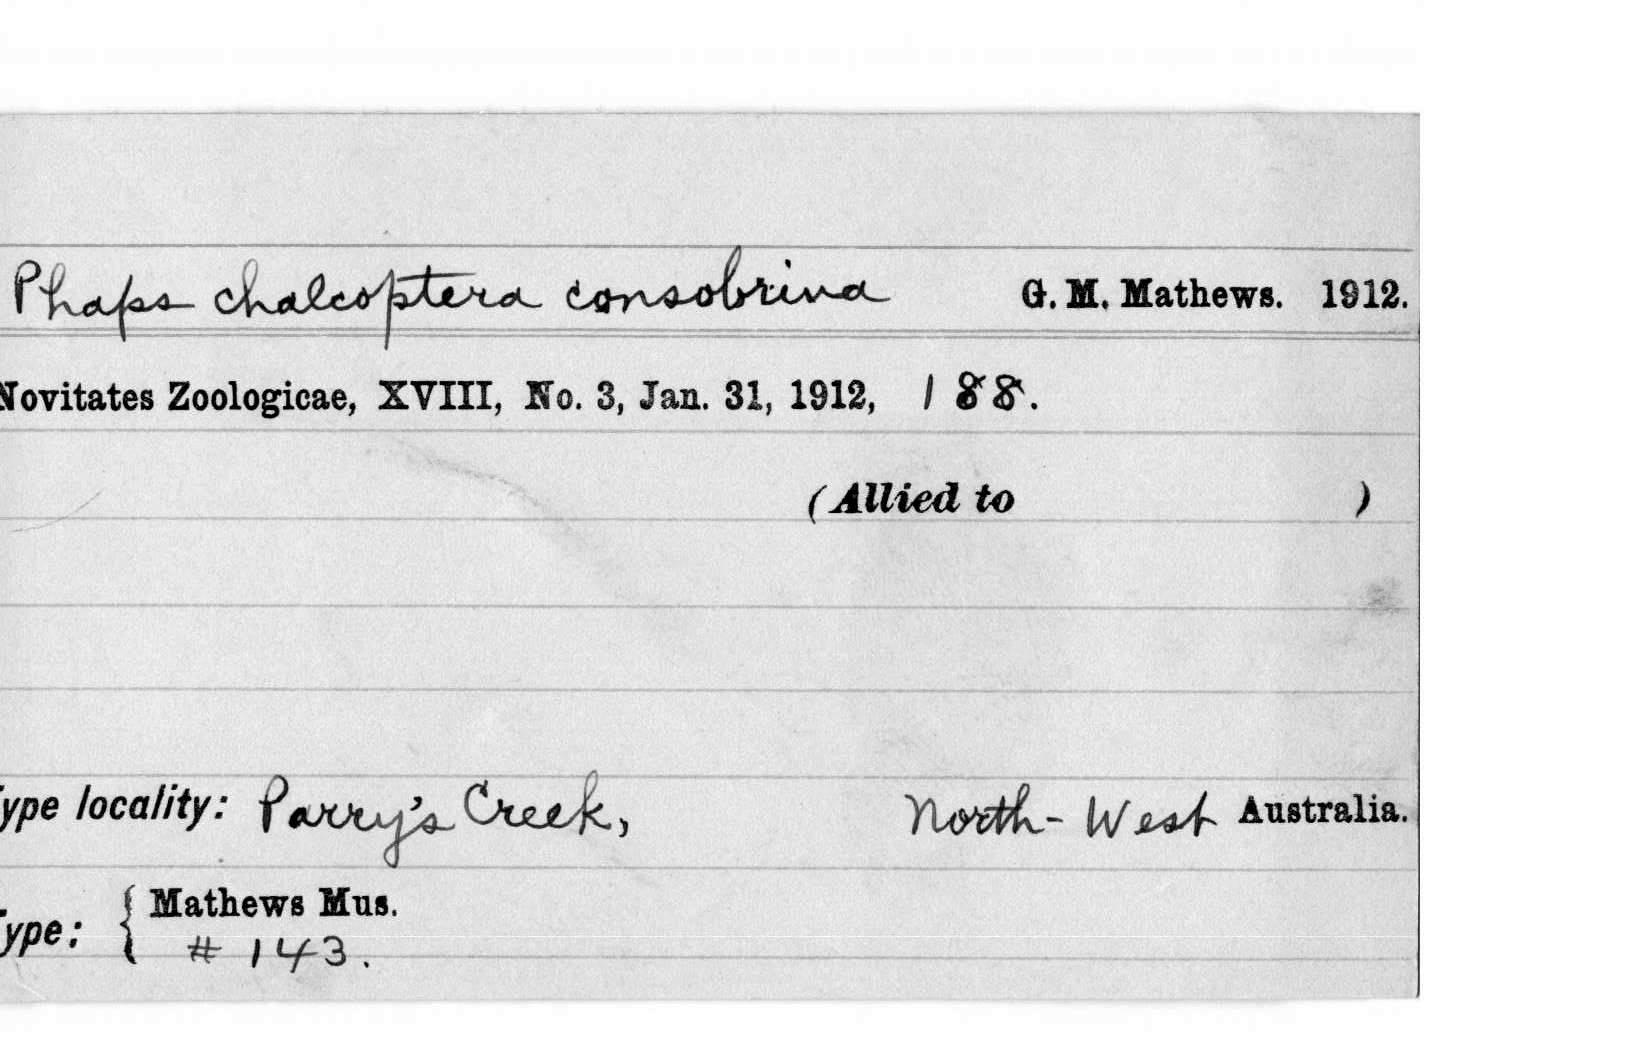 Phaps chalcoptera consobrina G. M. Mathews. 1912.
Novitates Zoologicae, XVIII, No. 3, Jan. 31, 1912, 188.
(Allied to )
Type locality: Parry's Creek, North-West Australia.
Type: { Mathews Mus.
# 143.